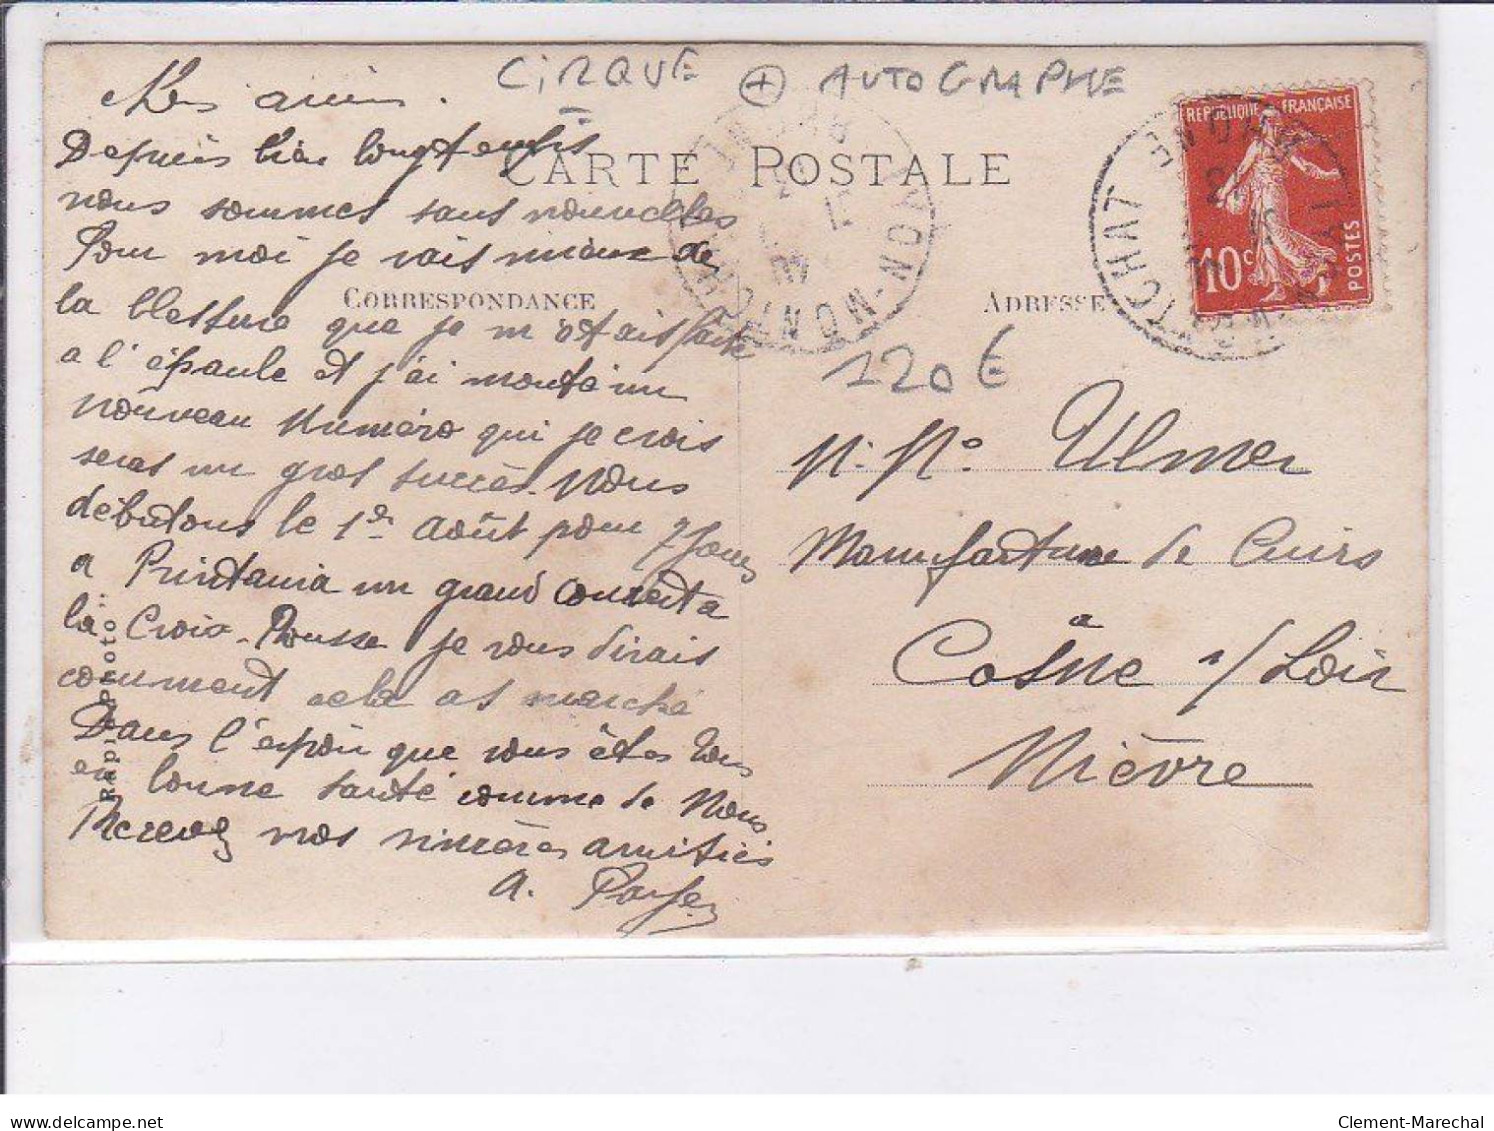 CIRQUE + AUTOGRAPHE
REPUBLIQUE FRANÇAISE
10c
POSTES
CARTE POSTALE
CORRESPONDANCE
ADRESSE
120€
Mes amis.
Depuis bien longtemps
nous sommes sans nouvelles
Pour moi je vais mieux de
la blessure que je m'étais faite
a l'épaule et j'ai monté un
nouveau Numéro qui je crois
seras un gros succès. Nous
débutons le 1er Août pour 7 Jours
a Printania un grand concert a
la Croix-Rousse je vous dirais
comment cela as marché
Dans l'espoir que vous êtes tous
en bonne santé comme de Nous
Recevez nos sincères amitiés
A.
Ulmer
Manufacture de Cuirs
a
Cosne s/Loir
Nièvre
Rapid Photo
MONTCHAT
Clement-Marechal
delcampe.net